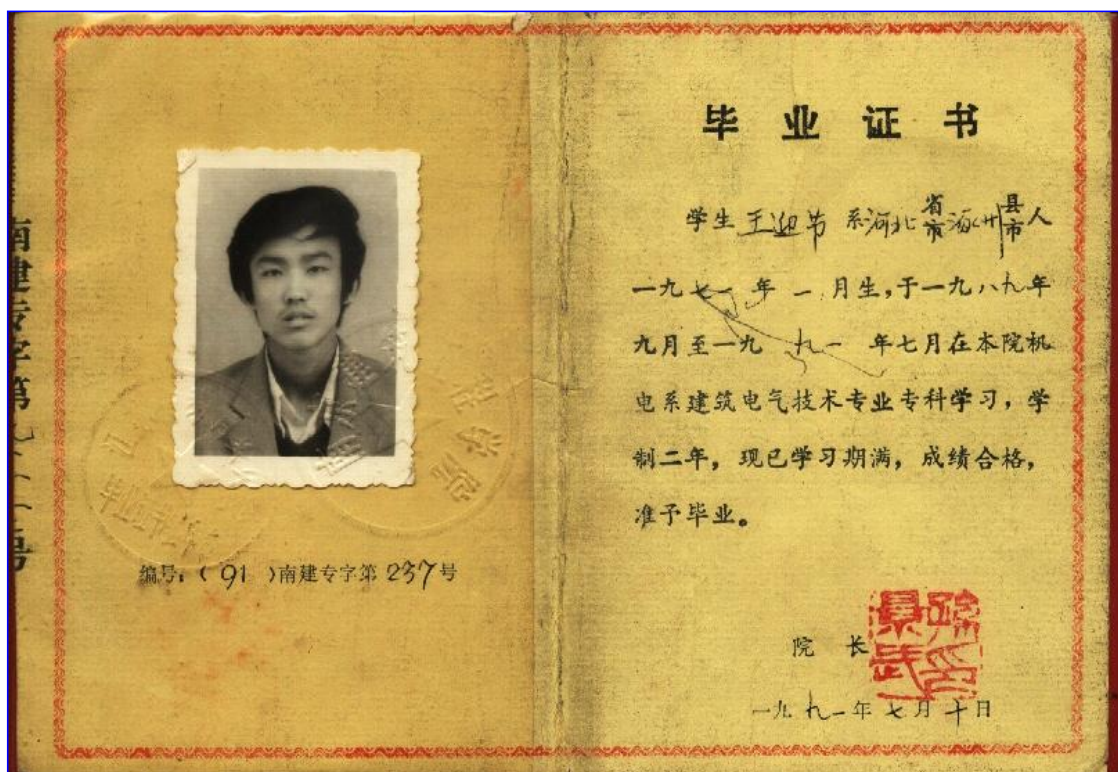 编号:( 91 )南建专字第 237 号
毕业证书
学生 王迎节 系河北省市涿州县市人
一九七一年 一 月生,于一九八九年
九月至一九 九一 年七月在本院机
电系建筑电气技术专业专科学习,学
制二年,现已学习期满,成绩合格,
准予毕业。
院 长
一九九一年七月十日